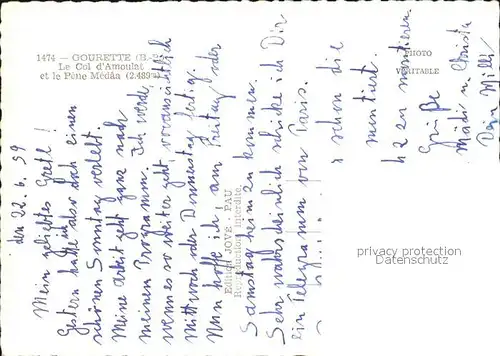 1474 — GOURETTE (B.-P.)
Le Col d'Amoulat
et le Pène Médâa (2.489m)
PHOTO
VÉRITABLE
Edition JOVÉ - PAU
Reproduction interdite.
den 22. 6. 59
Mein geliebtes Gretl!
Gestern habe ich also doch einen
schönen Sonntag verlebt.
Meine Arbeit geht ganz nach
meinem Programm. Ich werde,
wenn es so weiter geht, voraussichtlich
Mittwoch oder Donnerstag fertig.
Nun hoffe ich, am Freitag oder
Samstag heim zu kommen.
Sehr wahrscheinlich schicke ich Dir
ein Telegramm von Paris.
schon die
montiert.
42 zu montieren.
Grüße
Mädi u. Christa
Dein Willi
privacy protection
Datenschutz